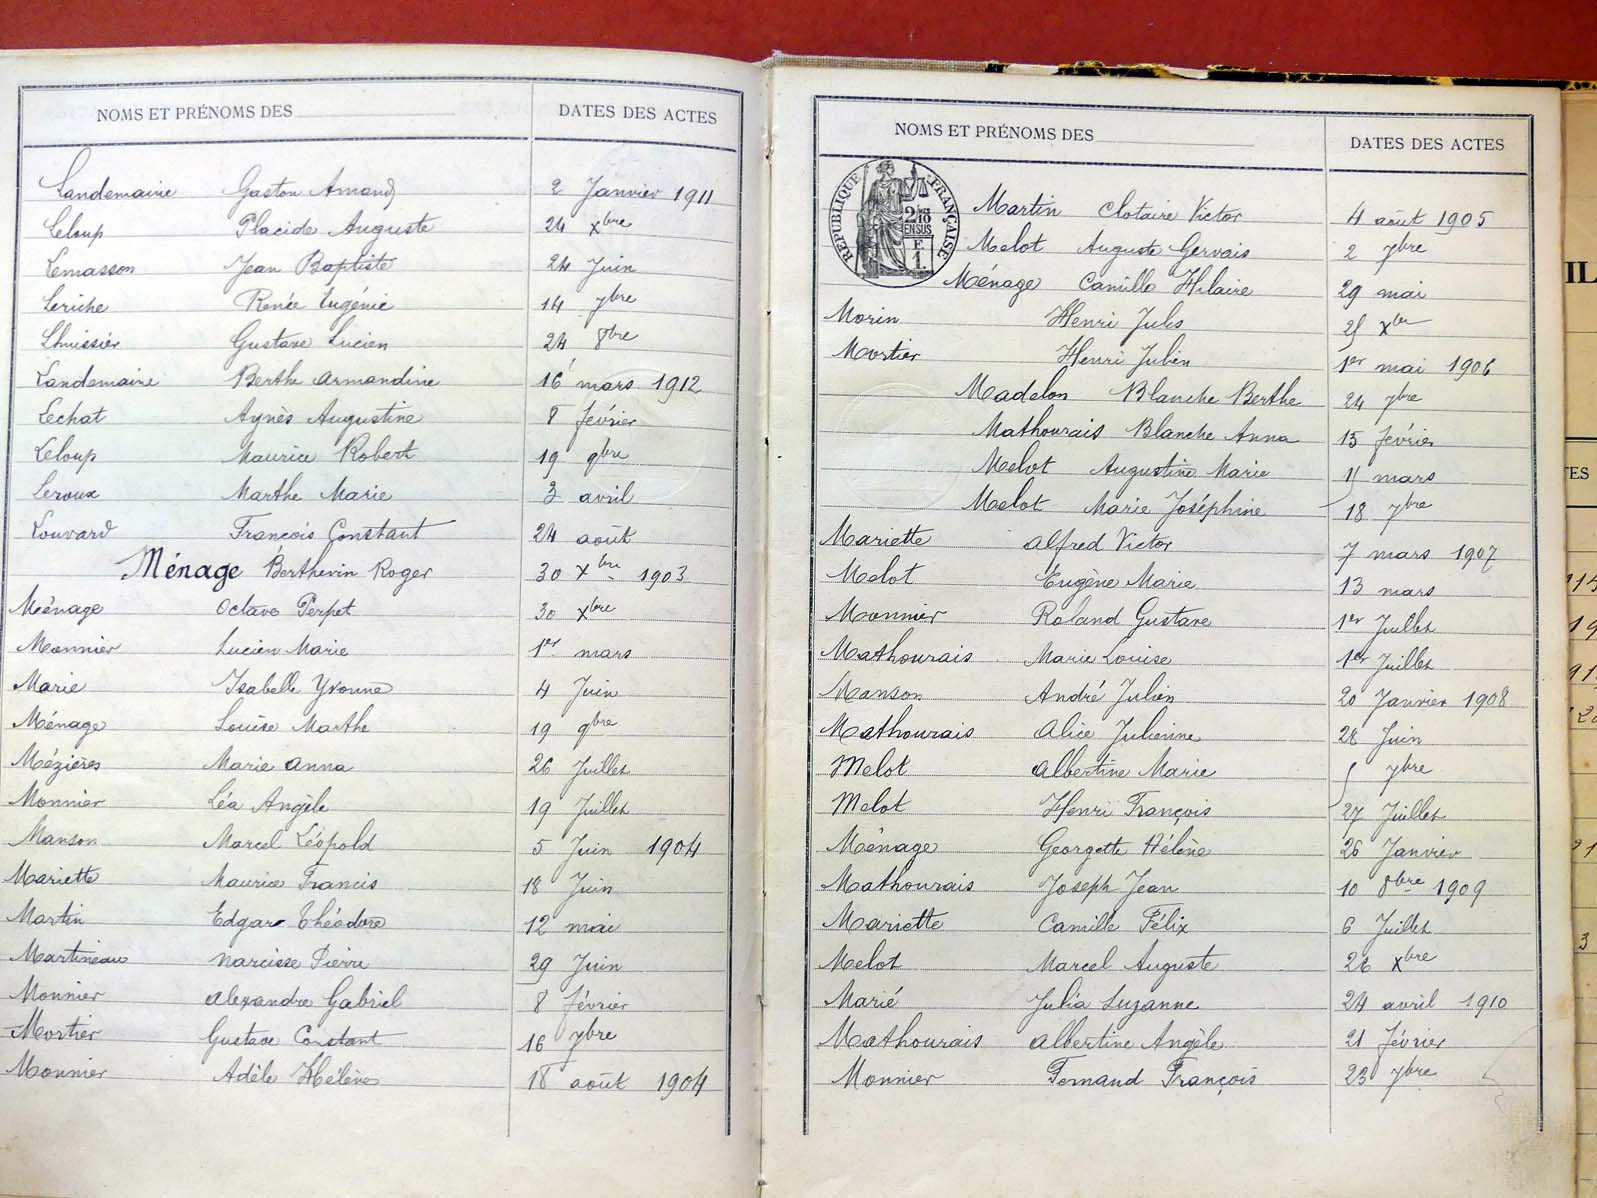 NOMS ET PRÉNOMS DES DATES DES ACTES
Landemaine Gaston Amand 2 Janvier 1911
Leloup Placide Auguste 24 Xbre
Lemasson Jean Baptiste 24 Juin
Leriche Renée Eugénie 14 7bre
Lhuissier Gustave Lucien 24 8bre
Landemaine Berthe Armandine 16 mars 1912
Lechat Agnès Augustine 8 février
Leloup Maurice Robert 19 9bre
Leroux Marthe Marie 3 avril
Louvard François Constant 24 août
Ménage Berthevin Roger 30 Xbre 1903
Ménage Octave Perpet 30 Xbre
Monnier Lucien Marie 1er mars
Marie Isabelle Yvonne 4 Juin
Ménage Louise Marthe 19 9bre
Mézières Marie Anna 26 Juillet
Monnier Léa Angèle 19 Juillet
Manson Marcel Léopold 5 Juin 1904
Mariette Maurice Francis 18 Juin
Martin Edgar Théodore 12 mai
Martineau Narcisse Pierre 29 Juin
Monnier Alexandre Gabriel 8 février
Mortier Gustave Constant 16 7bre
Monnier Adèle Hélène 18 août 1904
NOMS ET PRÉNOMS DES DATES DES ACTES
RÉPUBLIQUE FRANÇAISE
2 10
EN SUS
F
1.
Martin Clotaire Victor 4 août 1905
Melot Auguste Gervais 2 7bre
Ménage Camille Hilaire 29 mai
Morin Henri Jules Xbre
Mortier Henri Julien 1er mai 1906
Madelon Blanche Berthe 24 7bre
Mathourais Blanche Anna 15 février
Melot Augustine Marie 11 mars
Melot Marie Joséphine 18 7bre
Mariette Alfred Victor 7 mars 1907
Melot Eugène Marie 13 mars
Monnier Roland Gustave 1er Juillet
Mathourais Marie Louise 1er Juillet
Manson André Julien 20 Janvier 1908
Mathourais Alice Julienne 28 Juin
Melot Albertine Marie 7bre
Melot Henri François 27 Juillet
Ménage Georgette Hélène 26 Janvier
Mathourais Joseph Jean 10 8bre 1909
Mariette Camille Félix 6 Juillet
Melot Marcel Auguste 26 Xbre
Marié Julia Suzanne 24 avril 1910
Mathourais Albertine Angèle 21 février
Monnier Fernand François 23 7bre